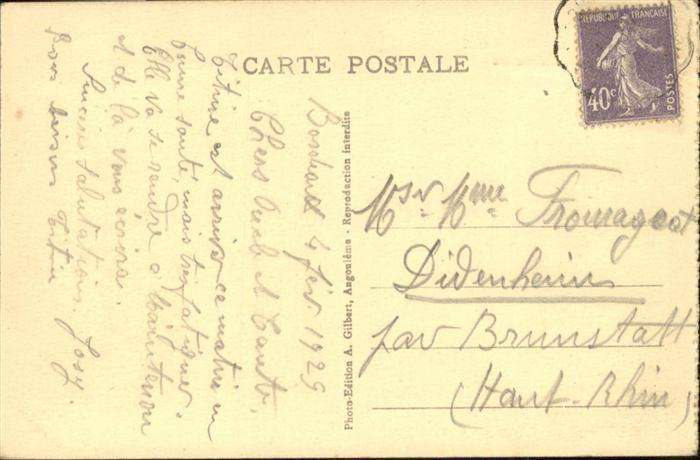 CARTE POSTALE
REPUBLIQUE FRANÇAISE
40c
POSTES
4 fév 1929
Chers Oncle et Tante,
Titine est arrivée ce matin en
bonne santé, mais très fatiguée.
Elle va se rendre à
et de là vous écrira.
Sincères salutations. Josy.
Bons baisers Titin
Photo-Edition A. Gilbert, Angoulême - Reproduction interdite
Mr & Mme Fromageat
Didenheim
par Brunstatt
(Haut-Rhin)